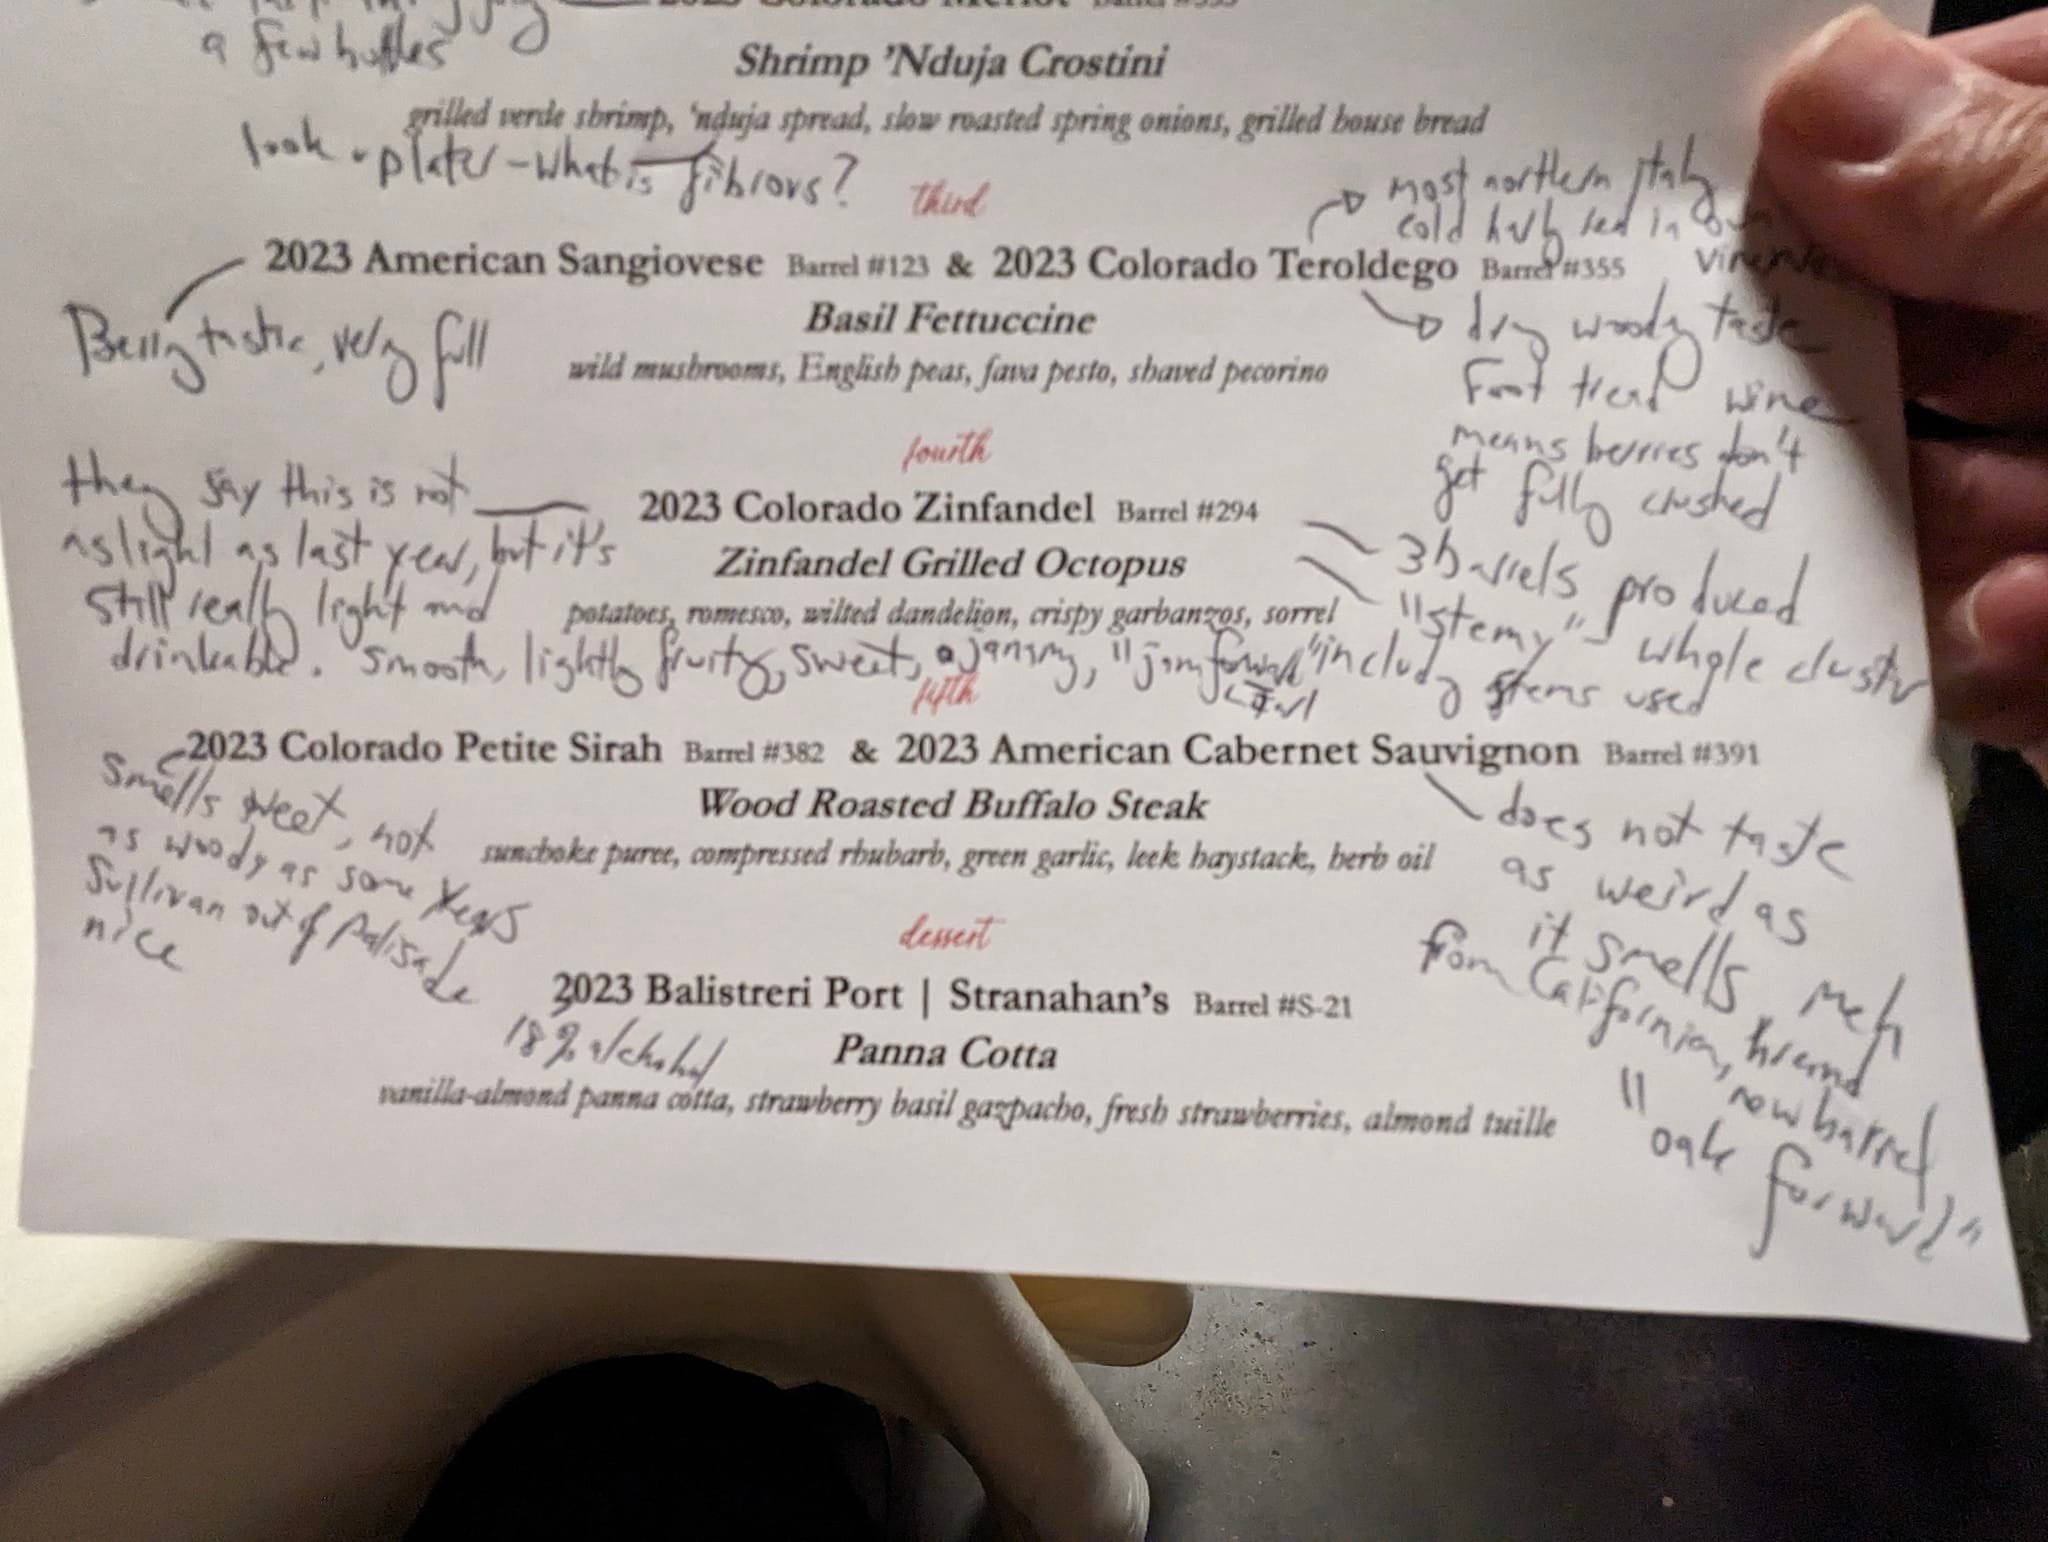 a few bottles
Shrimp 'Nduja Crostini
grilled verde shrimp, 'nduja spread, slow roasted spring onions, grilled house bread
look up later - what is fibrous?
third
most northern Italy
cold hardy red in our
2023 American Sangiovese Barrel #123 & 2023 Colorado Teroldego Barrel #355
Basil Fettuccine
wild mushrooms, English peas, fava pesto, shaved pecorino
Berrytastic, very full
dry woody taste
Foot tread wine
means berries don't
get fully crushed
fourth
2023 Colorado Zinfandel Barrel #294
Zinfandel Grilled Octopus
potatoes, romesco, wilted dandelion, crispy garbanzos, sorrel
they say this is not
as light as last year, but it's
still really light and
drinkable. smooth, lightly fruity, sweet, jammy, "jam forward"
3 barrels produced
"stemy" - whole cluster
includg stems used
fifth
2023 Colorado Petite Sirah Barrel #382 & 2023 American Cabernet Sauvignon Barrel #391
Wood Roasted Buffalo Steak
sunchoke puree, compressed rhubarb, green garlic, leek haystack, herb oil
smells sweet, not
as woody as some years
Sullivan out of Palisade
nice
does not taste
as weird as
it smells meh
from California,
new barrel,
"oak forward"
dessert
2023 Balistreri Port | Stranahan's Barrel #S-21
18% alchohol
Panna Cotta
vanilla-almond panna cotta, strawberry basil gazpacho, fresh strawberries, almond tuille